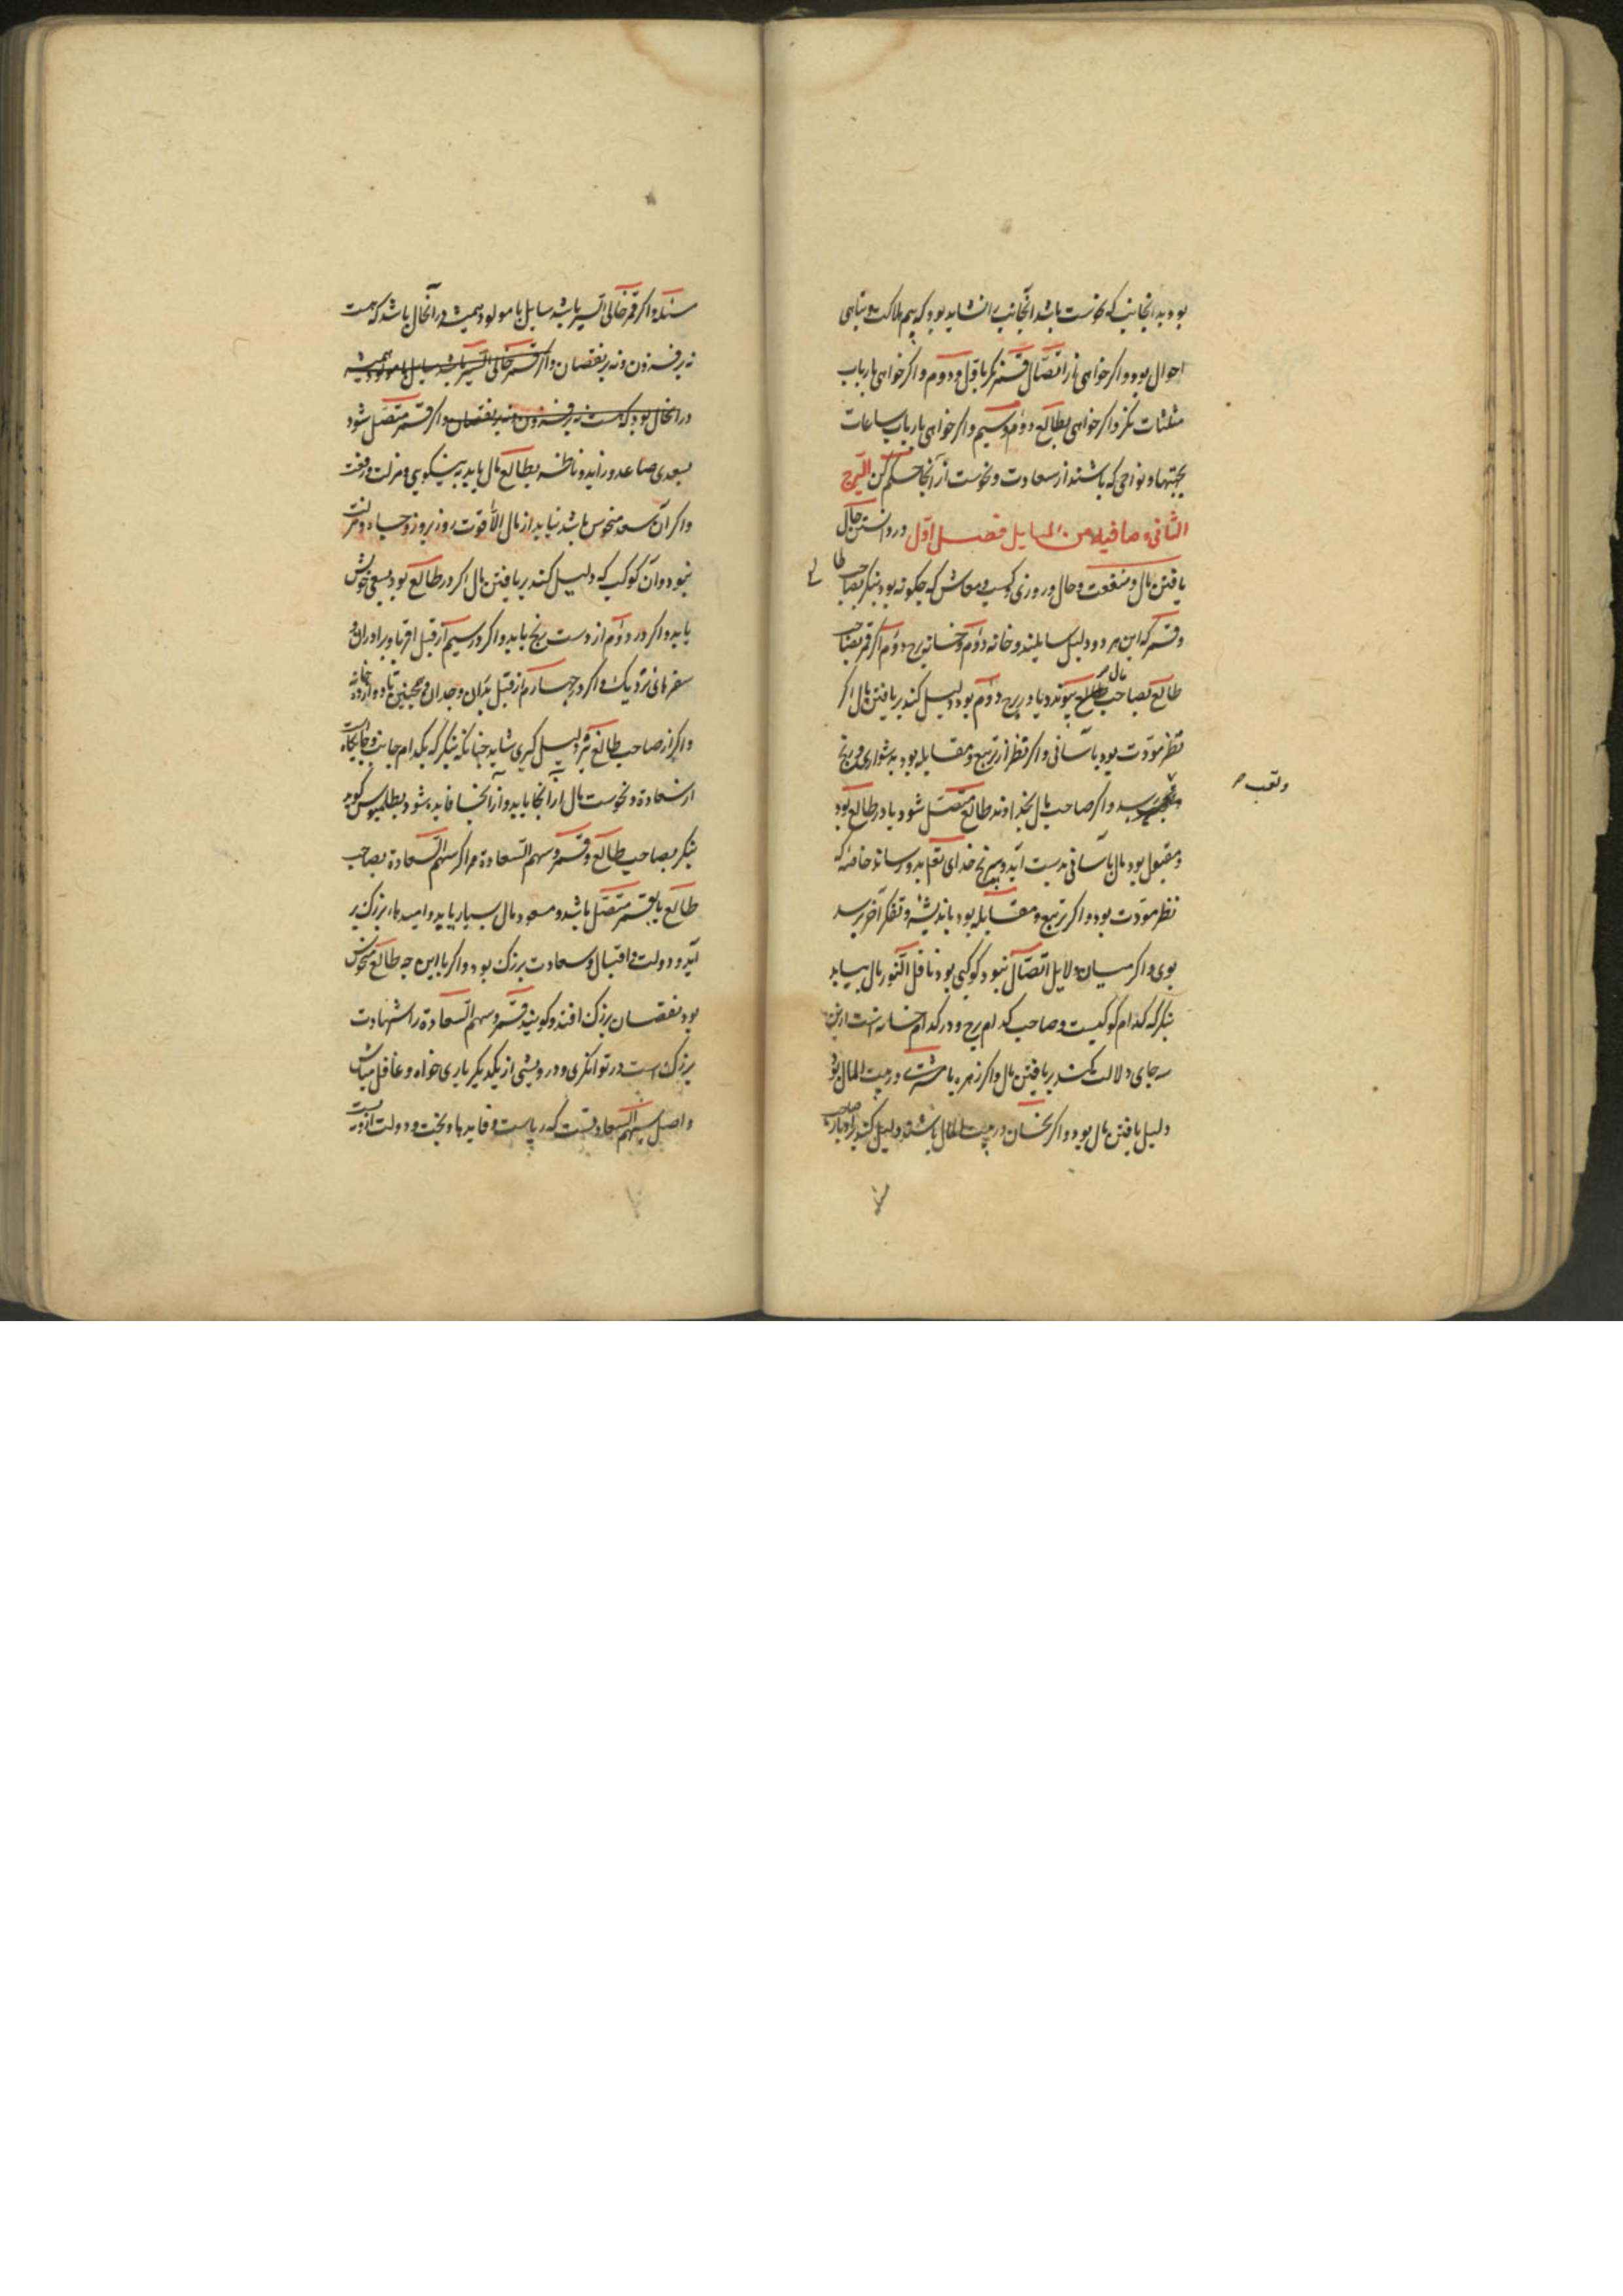 بود بدانجانب که نحوست باشد آنجانب را نشاید بود که بیم هلاکت و تباهی
احوال بود و اگر خواهی باز اتصال قمر نگر باول و دوم و اگر خواهی بارباب
مثلثات نگر و اگر خواهی بطالع دوم و سیم و اگر خواهی بارباب ساعات
بجهتها و نواحی که باشند از سعادت و نحوست از آنجا حکم کن البرج
الثانی و ما فیه من المسایل فصل اول در دانستن حال
یافتن مال و منفعت و حال و روزی و کسب و معاش که چگونه بود بنگر بصاحب طا
لع
و قمر که این هر دو دلیل سایلند و خانه دوم و خانه برج دوم اگر قمر بصاحب
طالع بصاحب مال پیوندد یا در برج دوم بود دلیل کند بر یافتن مال اگر
نظر مودت بود بآسانی و اگر نظر از تربیع و مقابله بود بدشواری و رنج
و تعب
رسد و اگر صاحب مال بخداوند طالع متصل شود یا در طالع بود
و مقبول بود مال بآسانی بدست آید و بی رنج خدای تعم بدو رساند خاصه که
نظر مودت بود و اگر تربیع و مقابله بود باندیشه و تفکر آخر برسد
بوی و اگر میان دلایل اتصال نبود کوکبی بود ناقل النور مال بیابد
بنگر که کدام کوکبست و صاحب کدام برج و در کدام خانه است از این
سه جای دلالت کند بر یافتن مال و اگر زهره یا مشتری در بیت المال بود
دلیل یافتن مال بود و اگر نحسان در بیت المال باشند دلیل کند
سئله و اگر قمر خالی السیر باشد سایل یا مولود همیشه در آنحال باشد که هست
نه بر فزون و نه بر نقصان و اگر قمر خالی السیر باشد سایل یا مولود همیشه
در آنحال بود که هست نه بر فزون نه بر نقصان و اگر قمر متصل شود
بسعدی صاعد و زاید و ناظر بطالع مال یابد به نیکویی و منزلت و رفعت
و اگر آن سعد منحوس باشد نیابد از مال الا قوت روز بروز و جاه و منزلت
نبود و آن کوکب که دلیل کند بر یافتن مال اگر در طالع بود بسعی خویش
یابد و اگر در دوم از دست رنج یابد و اگر در سیم از قبل اقربا و برادران و
سفرهای نزدیک و اگر در چهارم از قبل پدران و جدان و همچنین تا دوازده خانه
و اگر از صاحب طالع نیز دلیل گیری شاید چنانکه بنگر که بکدام جانب و جایگاه است
از سعادة و نحوست مال از آنجا یابد و از آنجا فایده شود بطلمیوس گوید
بنگر بصاحب طالع و قمر و سهم السعادة هر اگر سهم السعادة بصاحب
طالع یا بقمر متصل باشد و مسعود مال بسیار یابد و امیدهاء بزرگ بر
آید و دولت و اقبال و سعادت بزرگ بود و اگر با این وجه طالع منحوس
بود نقصان بزرگ افتد و گویند قمر و سهم السعادة را شهادت
بزرگ است در توانگری و درویشی از یکدیگر یاری خواه و غافل مباش
و اصل سهم السعاد قمر است که ریاست و فایدها و بخت و دولت ازوست